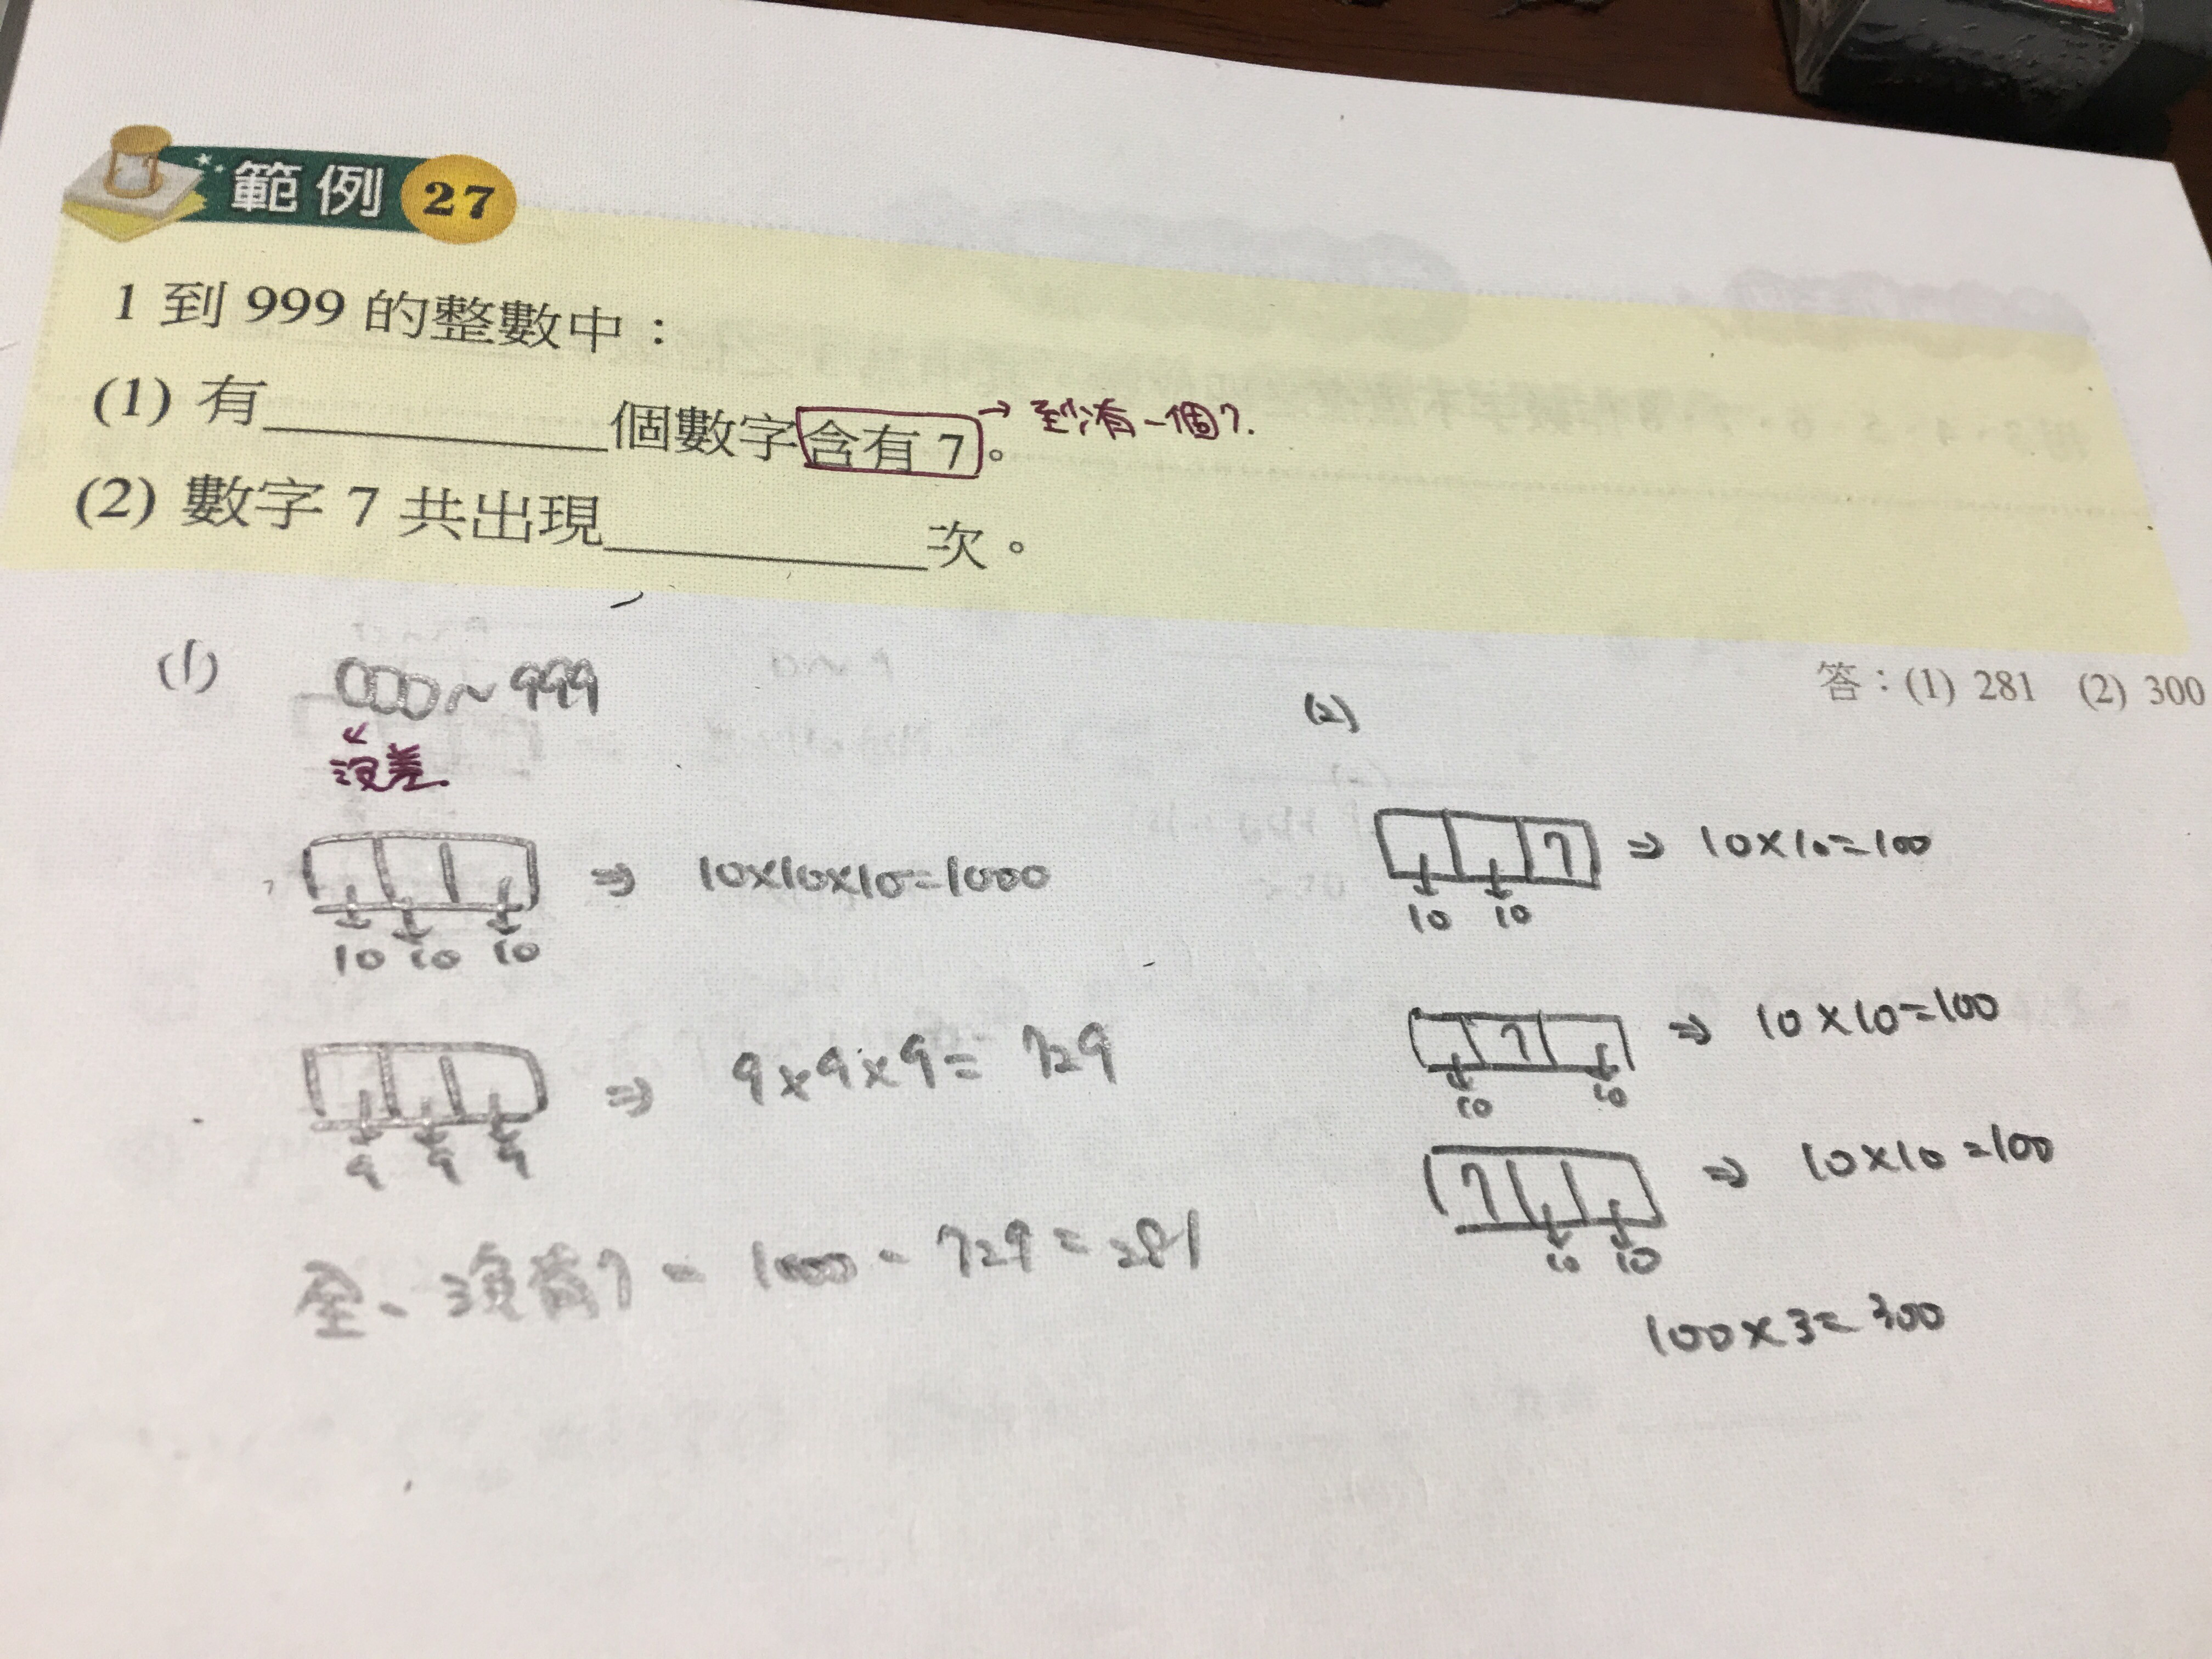 範例 27
1 到 999 的整數中：
(1) 有__________個數字含有 7。→ 至少有一個7.
(2) 數字 7 共出現__________次。
答：(1) 281 (2) 300
(1) 000~999
沒差.
⇒ 10×10×10=1000
10 10 10
⇒ 9×9×9= 729
9 9 9
全-沒有7 = 1000 - 729 = 281
(2)
7 ⇒ 10×10=100
10 10
7 ⇒ 10×10=100
10 10
7 ⇒ 10×10=100
10 10
100×3=300